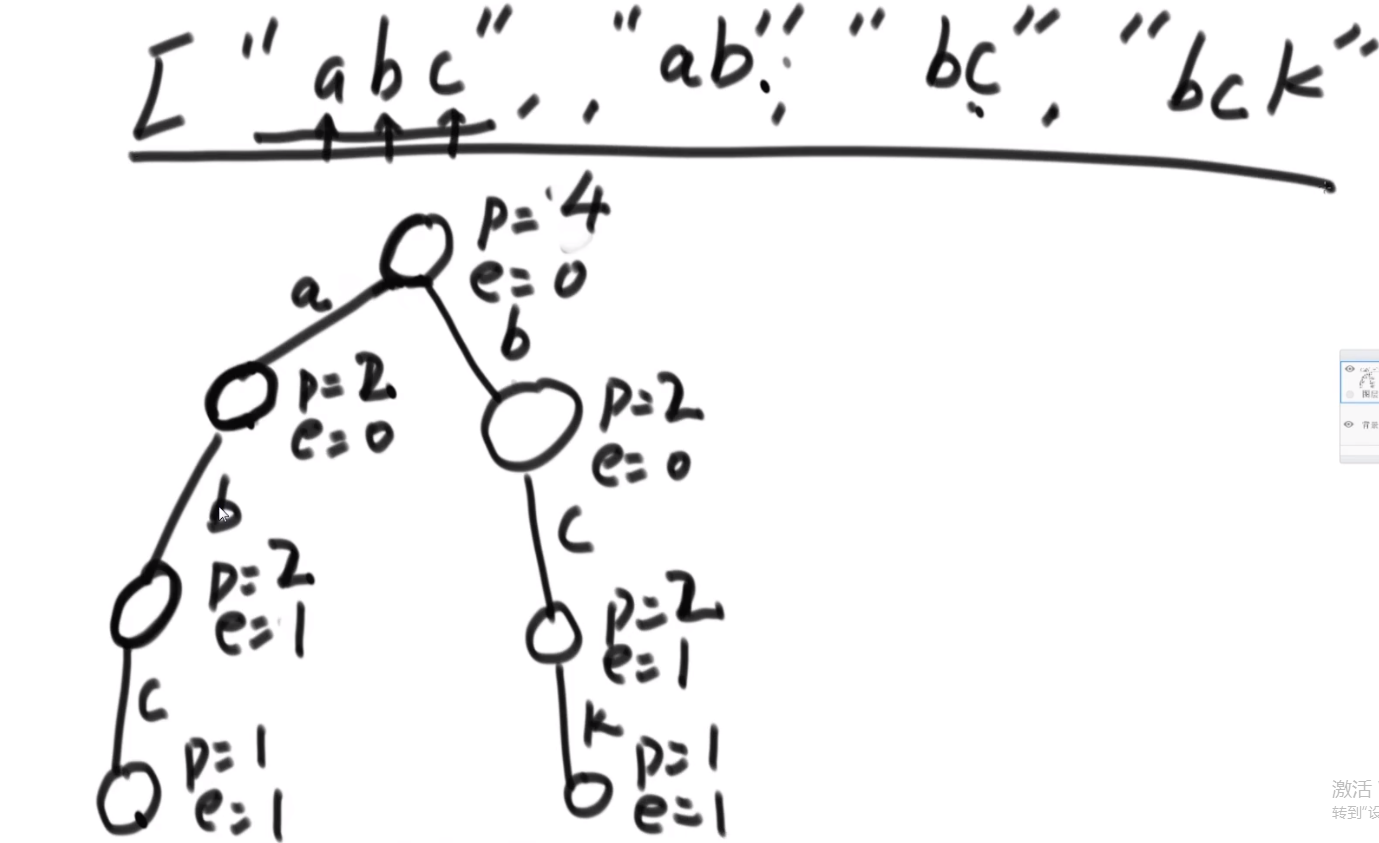 ["abc", "ab", "bc", "bck"
p=4
e=0
a
b
p=2
e=0
p=2
e=0
b
c
p=2
e=1
p=2
e=1
c
k
p=1
e=1
p=1
e=1
激活
转到"设